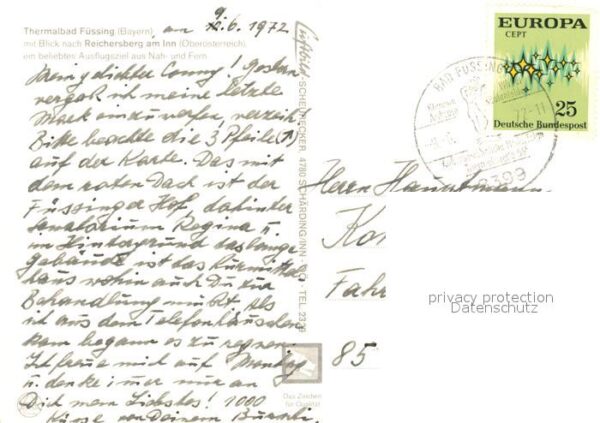 Thermalbad Füssing (Bayern)
mit Blick nach Reichersberg am Inn (Oberösterreich),
ein beliebtes Ausflugsziel aus Nah- und Fern
an 9.6.1972
Mein geliebter Conny! Gestern
vergaß ich meine letzte
Mark einzuwerfen, verzeih!
Bitte beachte die 3 Pfeile (↑)
auf der Karte. Das mit
dem roten Dach ist der
Füssinger Hof, dahinter
Sanatorium Regina u.
im Hintergrund das lange
Gebäude ist das Kurmittel
haus wohin auch Du zur
Behandlung mußt. Als
ich aus dem Telefonhäuschen
kam begann es zu regnen.
Ich freue mich auf Montag
u. denke immer nur an
Dich mein Liebstes! 1000
Küsse von Deinem Burschi.
Luftbild-SCHERBÖCKER 4780 SCHÄRDING/INN - OÖ - TEL.
Das Zeichen
für Qualität
EUROPA
CEPT
25
Deutsche Bundespost
BAD FÜSSING
8399
Herrn Hauptmann
Ko
Fahr
85
privacy protection
Datenschutz